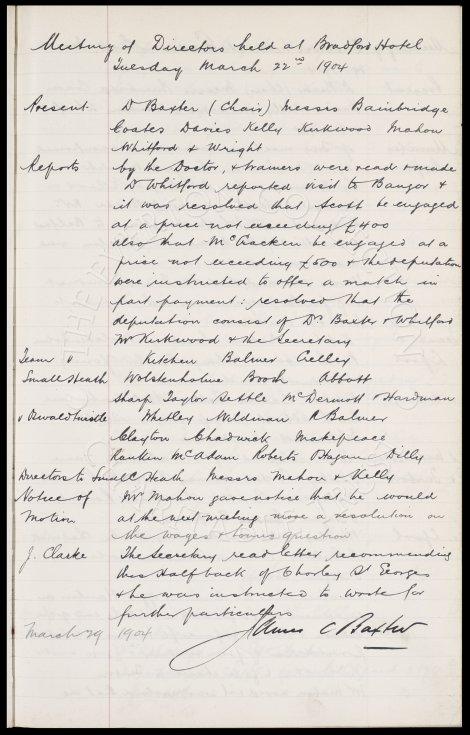 Meeting of Directors held at Bradford Hotel
Tuesday March 22nd 1904
Present Dr Baxter (Chair) Messrs Bainbridge
Coates Davies Kelly Kirkwood Mahon
Whitford & Wright
Reports by the Doctor, & trainers were read & made
Dr Whitford reported visit to Bangor &
it was resolved that Scott be engaged
at a price not exceeding £400
also that McCracken be engaged at a
price not exceeding £500 & the deputation
were instructed to offer a match in
part payment: resolved that the
deputation consist of Drs Baxter & Whitford
Mr Kirkwood & the Secretary
Team v Kitchen Balmer Crelley
Small Heath Wolstenholme Booth Abbott
Sharp Taylor Settle McDermott & Hardman
v Oswaldtwistle Whitley Wildman R Balmer
Clayton Chadwick Makepeace
Rankin McAdam Roberts OHagan Dilly
Directors to Small Heath Messrs Mahon & Kelly
Notice of Mr Mahon gave notice that he would
Motion at the next meeting move a resolution on
the wages & bonus question
J. Clarke The Secretary read letter recommending
this Half back of Chorley St Georges
& he was instructed to write for
further particulars
March 29 1904 James C Baxter